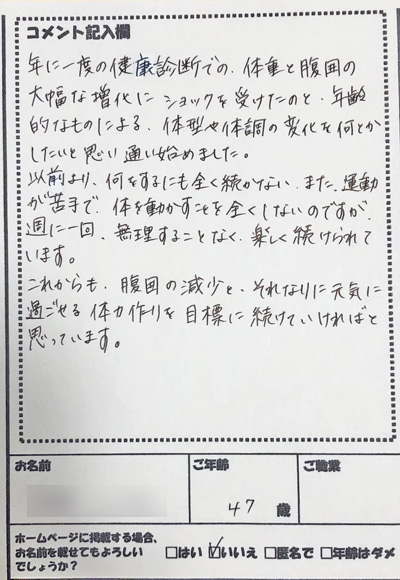 コメント記入欄
年に一度の健康診断での、体重と腹囲の
大幅な増化にショックを受けたのと、年齢
的なものによる、体型や体調の変化を何とか
したいと思い通い始めました。
以前より、何をするにも全く続かない、また、運動
が苦手で、体を動かすことを全くしないのですが、
週に一回、無理することなく、楽しく続けられて
います。
これからも、腹囲の減少と、それなりに元気に
過ごせる体力作りを目標に続けていければと
思っています。
お名前
ご年齢
ご職業
47 歳
ホームページに掲載する場合、
お名前を載せてもよろしい
でしょうか?
□はい ☑いいえ □匿名で □年齢はダメ